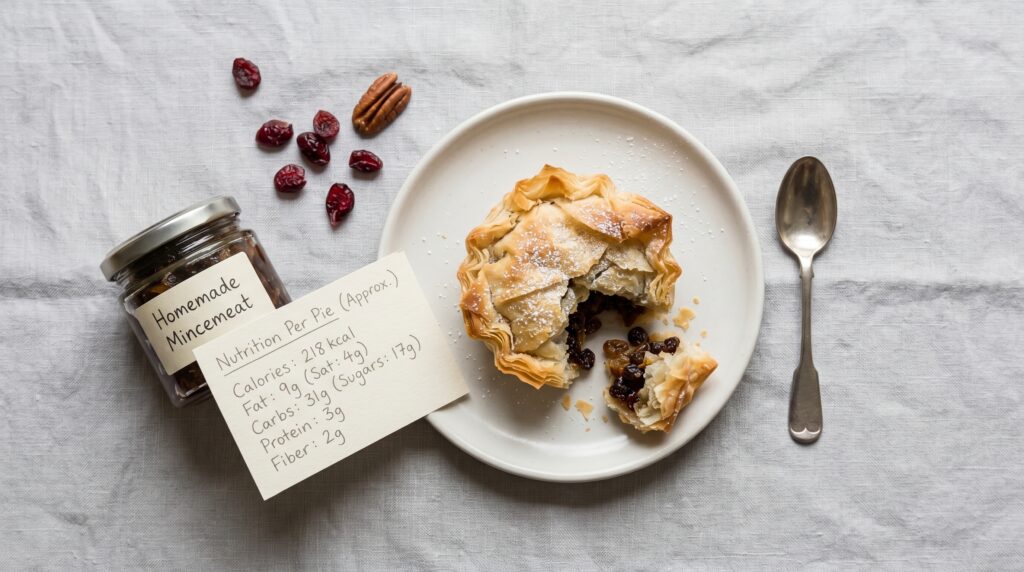 Homemade
Mincemeat
Nutrition Per Pie (Approx.)
Calories: 218 kcal
Fat: 9g (Sat: 4g)
Carbs: 31g (Sugars: 17g)
Protein: 3g
Fiber: 2g